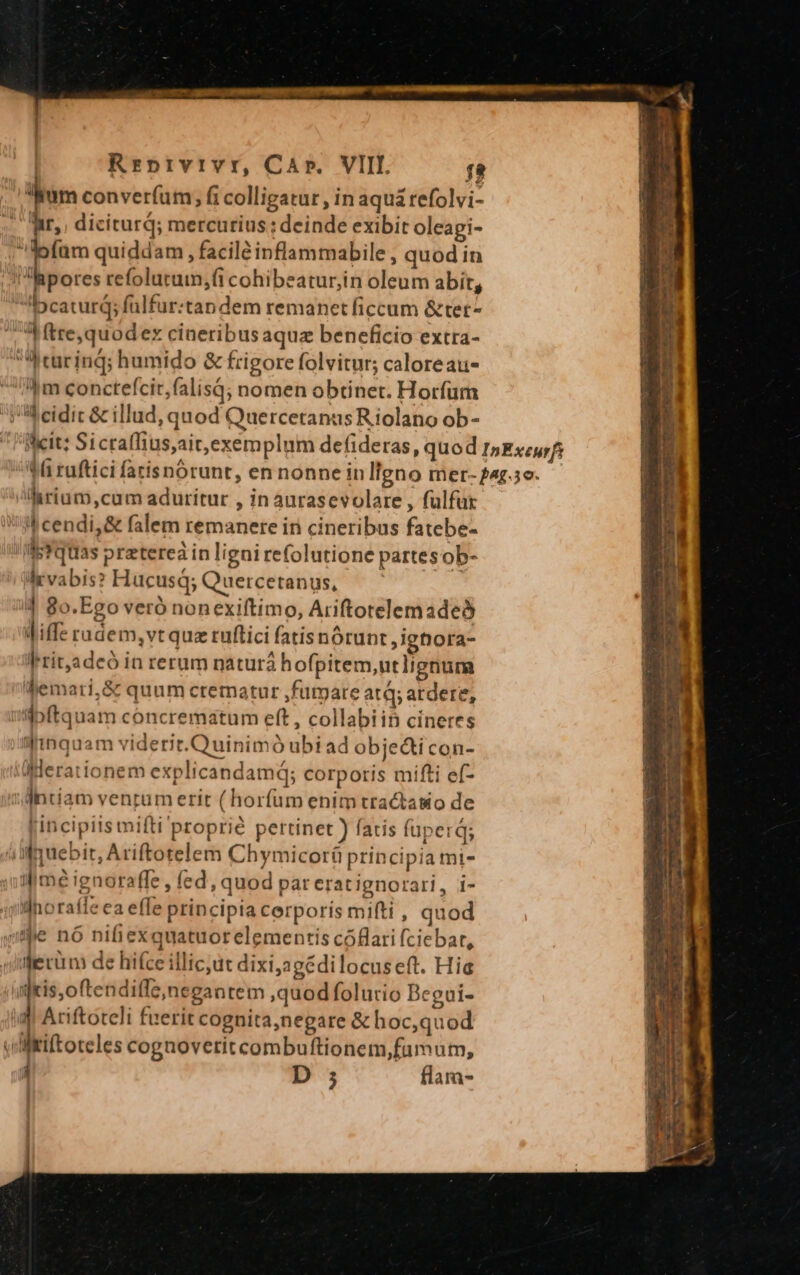 REDIVIVI, CAP. VIII.
conversum, si colligatur, in aquá resolvi-
diciturq; mercurius: deinde exibit oleagi-
quiddam, facilè inflammabile, quod in
resolutum, si cohibeatur, in oleum abit,
sulfur: tandem remanet siccum & ter-
quod ex cineribus aquæ beneficio extra-
humido & frigore solvitur; calore au-
conctescit, salisq; nomen obtinet. Horsum
& illud, quod Quercetanus Riolano ob-
Si crassius, ait, exemplum desideras, quod InExcurs
rustici satis nôrunt, en nonne in ligno mer- pag.30.
cum aduritur, in auras evolare, sulfur
& salem remanere in cineribus fatebe-
quas prætereà in ligni resolutione partes ob-
Hucusq; Quercetanus,
80. Ego verò non existimo, Aristotelem adeò
rudem, vt quæ rustici satis nôrunt, ignora-
adeò in rerum naturâ hospitem, ut lignum
& quum crematur, fumare atq; ardere,
concrematum est, collabi in cineres
viderit. Quinimò ubi ad objecti con-
explicandamq; corporis misti es-
ventum erit (horsum enim tractatio de
misti propriè pertinet) satis superq;
Aristotelem Chymicorũ principia mi-
ignorasse, sed, quod par erat ignorari, i-
ea esse principia corporis misti, quod
nõ nisi ex quatuor elementis cõflari sciebat,
de hisce illic, ut dixi, agẽdi locus est. Hic
ostendisse, negantem, quod solutio Begui-
Aristoteli fuerit cognita, negare & hoc, quod
cognoverit combustionem, fumum,
D 3 flam-